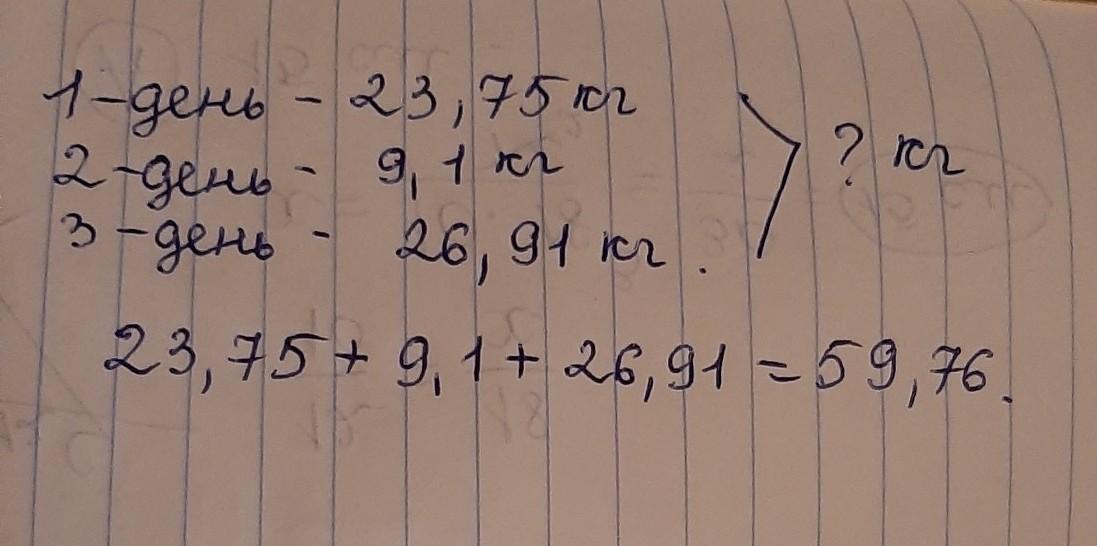 1-день - 23,75 кг
2-день - 9,1 кг
? кг
3-день - 26,91 кг.
23,75 + 9,1 + 26,91 = 59,76.